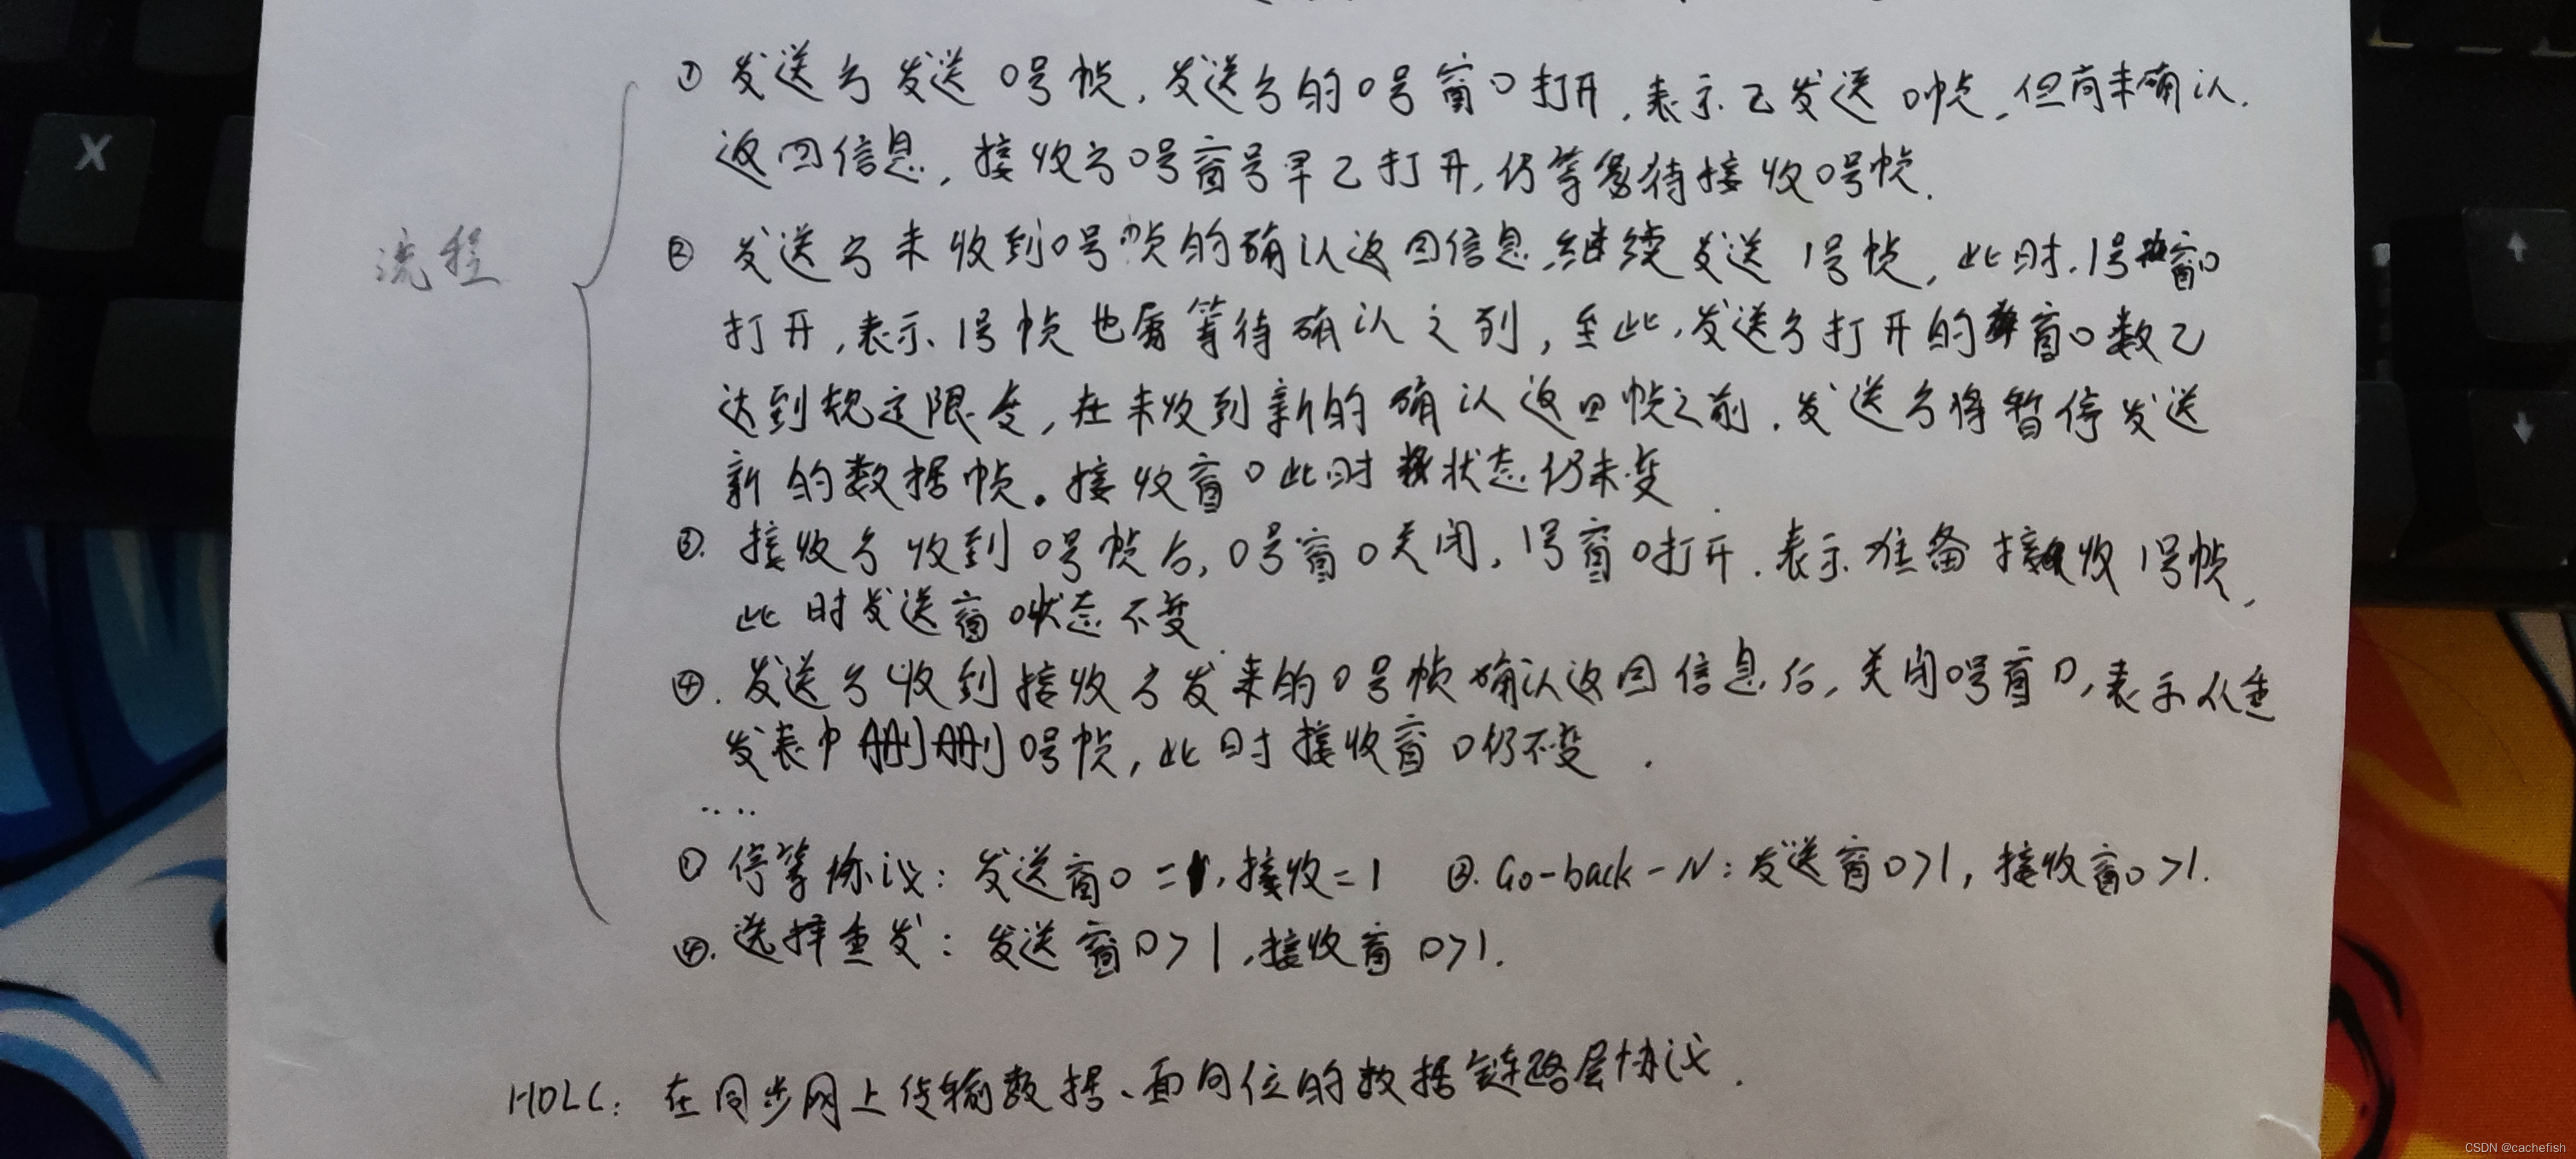 流程
① 发送方发送0号帧，发送方的0号窗口打开，表示已发送0帧，但尚未确认.
返回信息，接收方0号窗号早已打开，仍等待接收0号帧.
② 发送方未收到0号帧的确认返回信息，继续发送1号帧，此时，1号窗口
打开，表示1号帧也属等待确认之列，至此，发送方打开的窗口数已
达到规定限度，在未收到新的确认返回帧之前，发送方将暂停发送
新的数据帧。接收窗口此时状态仍未变.
③. 接收方收到0号帧后，0号窗口关闭，1号窗口打开，表示准备接收1号帧，
此时发送窗口状态不变.
④. 发送方收到接收方发来的0号帧确认返回信息后，关闭0号窗口，表示从重
发表中删删0号帧，此时接收窗口仍不变.
.....
① 停等协议：发送窗口=1，接收=1 ②. Go-back-N：发送窗口>1，接收窗口>1.
④. 选择重发：发送窗口>1，接收窗口>1.
HDLC：在同步网上传输数据、面向位的数据链路层协议.
X
↑
↓
CSDN @cachefish